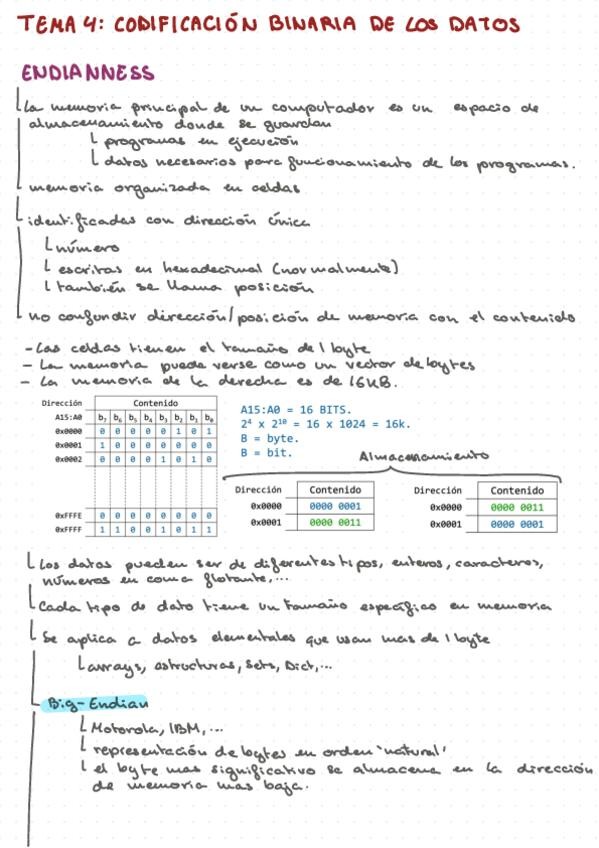 TEMA 4: CODIFICACIÓN BINARIA DE LOS DATOS
ENDIANNESS
La memoria principal de un computador es un espacio de
almacenamiento donde se guardan
programas en ejecución
datos necesarios para funcionamiento de los programas.
memoria organizada en celdas
identificadas con dirección única
número
escritas en hexadecimal (normalmente)
también se llama posición
no confundir dirección/posición de memoria con el contenido
- Las celdas tienen el tamaño de 1 byte
- La memoria puede verse como un vector de bytes
- La memoria de la derecha es de 16KB.
Dirección Contenido
A15:A0 b7 b6 b5 b4 b3 b2 b1 b0
0x0000 0 0 0 0 0 1 0 1
0x0001 1 0 0 0 0 0 0 0
0x0002 0 0 0 0 1 0 1 0
0xFFFE 0 0 0 0 0 0 0 0
0xFFFF 1 1 0 0 1 0 1 1
A15:A0 = 16 BITS.
2⁴ x 2¹⁰ = 16 x 1024 = 16k.
B = byte.
B = bit.
Almacenamiento
Dirección Contenido
0x0000 0000 0001
0x0001 0000 0011
Dirección Contenido
0x0000 0000 0011
0x0001 0000 0001
Los datos pueden ser de diferentes tipos, enteros, caracteres,
números en coma flotante,...
Cada tipo de dato tiene un tamaño específico en memoria
Se aplica a datos elementales que usan mas de 1 byte
arrays, estructuras, Sets, Dict,...
Big-Endian
Motorola, IBM,...
representación de bytes en orden 'natural'
el byte mas significativo se almacena en la dirección
de memoria mas baja.